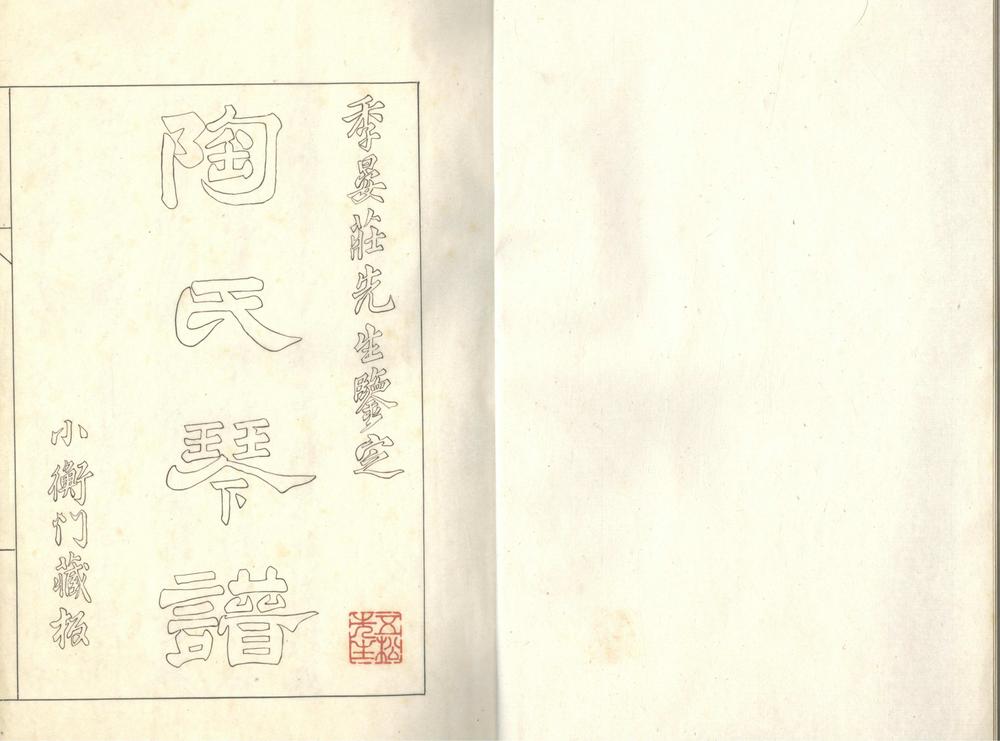 季晏莊先生鑒定
陶氏琴譜
小衡門藏板
五松先生